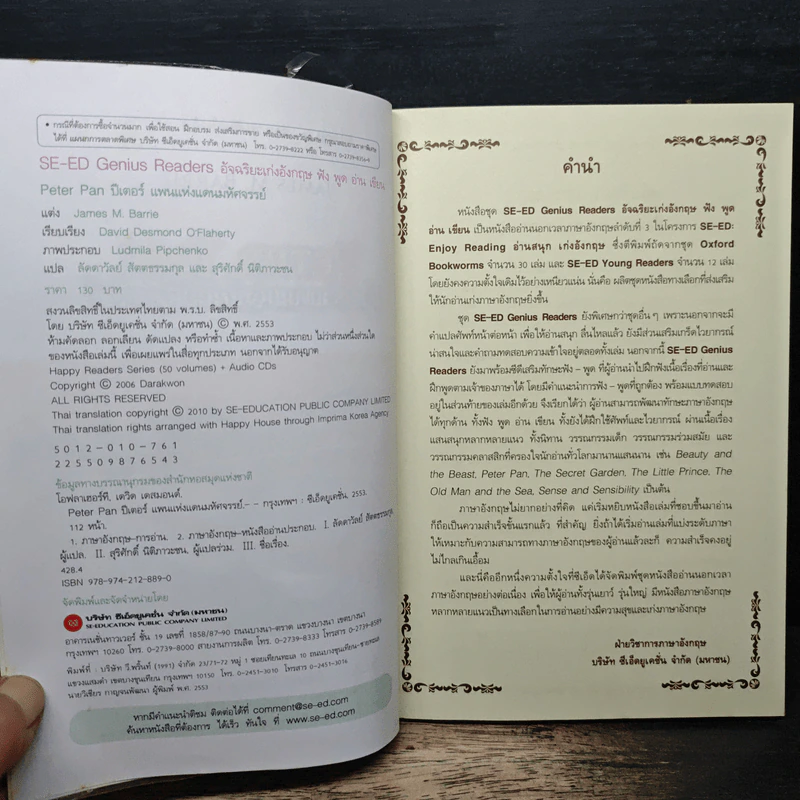 • กรณีที่ต้องการซื้อจำนวนมาก เพื่อใช้สอน ฝึกอบรม ส่งเสริมการขาย หรือเป็นของขวัญพิเศษ กรุณาสอบถามราคาพิเศษ
ได้ที่ แผนกการตลาดพิเศษ บริษัท ซีเอ็ดยูเคชั่น จำกัด (มหาชน) โทร. 0-2739-8222 หรือ โทรสาร
SE-ED Genius Readers อัจฉริยะเก่งอังกฤษ ฟัง พูด อ่าน เขียน
Peter Pan ปีเตอร์ แพนแห่งแดนมหัศจรรย์
แต่ง James M. Barrie
เรียบเรียง David Desmond O'Flaherty
ภาพประกอบ Ludmila Pipchenko
แปล ลัดดาวัลย์ สัตตธรรมกุล และ สุริศักดิ์ นิติภาวะชน
ราคา 130 บาท
สงวนลิขสิทธิ์ในประเทศไทยตาม พ.ร.บ. ลิขสิทธิ์
โดย บริษัท ซีเอ็ดยูเคชั่น จำกัด (มหาชน) © พ.ศ. 2553
ห้ามคัดลอก ลอกเลียน ดัดแปลง หรือทำซ้ำ เนื้อหาและภาพประกอบ ไม่ว่าส่วนหนึ่งส่วนใด
ของหนังสือเล่มนี้ เพื่อเผยแพร่ในสื่อทุกประเภท นอกจากได้รับอนุญาต
Happy Readers Series (50 volumes) + Audio CDs
Copyright © 2006 Darakwon
ALL RIGHTS RESERVED
Thai translation copyright © 2010 by SE-EDUCATION PUBLIC COMPANY LIMITED
Thai translation rights arranged with Happy House through Imprima Korea Agency
5 0 1 2 - 0 1 0 - 7 6 1
2 2 5 5 0 9 8 7 6 5 4 3
ข้อมูลทางบรรณานุกรมของสำนักหอสมุดแห่งชาติ
โอฟลาเฮอร์ที, เดวิด เดสมอนด์.
Peter Pan ปีเตอร์ แพนแห่งแดนมหัศจรรย์.-- กรุงเทพฯ : ซีเอ็ดยูเคชั่น, 2553.
112 หน้า.
1. ภาษาอังกฤษ-การอ่าน. 2. ภาษาอังกฤษ-หนังสืออ่านประกอบ. I. ลัดดาวัลย์ สัตตธรรมกุล,
ผู้แปล. II. สุริศักดิ์ นิติภาวะชน, ผู้แปลร่วม. III. ชื่อเรื่อง.
428.4
ISBN 978-974-212-889-0
จัดพิมพ์และจัดจำหน่ายโดย
บริษัท ซีเอ็ดยูเคชั่น จำกัด (มหาชน)
SE-EDUCATION PUBLIC COMPANY LIMITED
อาคารเนชั่นทาวเวอร์ ชั้น 19 เลขที่ 1858/87-90 ถนนบางนา-ตราด แขวงบางนา เขตบางนา
กรุงเทพฯ 10260 โทร. 0-2739-8000 สายงานการผลิต โทร. 0-2739-8333 โทรสาร 0-2739-8589
พิมพ์ที่ : บริษัท วี.พริ้นท์ (1991) จำกัด 23/71-72 หมู่ 1 ซอยเทียนทะเล 10 ถนนบางขุนเทียน-ชายทะเล
แขวงแสมดำ เขตบางขุนเทียน กรุงเทพฯ 10150 โทร. 0-2451-3010 โทรสาร 0-2451-3014
นายวิเชียร กาญจนพัฒนา ผู้พิมพ์ พ.ศ. 2553
หากมีคำแนะนำติชม ติดต่อได้ที่ comment@se-ed.com
ค้นหาหนังสือที่ต้องการ ได้เร็ว ทันใจ ที่ www.se-ed.com
คำนำ
หนังสือชุด SE-ED Genius Readers อัจฉริยะเก่งอังกฤษ ฟัง พูด
อ่าน เขียน เป็นหนังสืออ่านนอกเวลาภาษาอังกฤษลำดับที่ 3 ในโครงการ SE-ED:
Enjoy Reading อ่านสนุก เก่งอังกฤษ ซึ่งตีพิมพ์ถัดจากชุด Oxford
Bookworms จำนวน 30 เล่ม และ SE-ED Young Readers จำนวน 12 เล่ม
โดยยังคงความตั้งใจเดิมไว้อย่างเหนียวแน่น นั่นคือ ผลิตชุดหนังสือทางเลือกที่ส่งเสริม
ให้นักอ่านเก่งภาษาอังกฤษยิ่งขึ้น
ชุด SE-ED Genius Readers ยังพิเศษกว่าชุดอื่นๆ เพราะนอกจากจะมี
คำแปลศัพท์หน้าต่อหน้า เพื่อให้อ่านสนุก ลื่นไหลแล้ว ยังมีส่วนเสริมเกร็ดไวยากรณ์
น่าสนใจและคำถามทดสอบความเข้าใจอยู่ตลอดทั้งเล่ม นอกจากนี้ SE-ED Genius
Readers ยังมาพร้อมซีดีเสริมทักษะฟัง – พูด ที่ผู้อ่านนำไปฝึกฟังเนื้อเรื่องที่อ่านและ
ฝึกพูดตามเจ้าของภาษาได้ โดยมีคำแนะนำการฟัง – พูดที่ถูกต้อง พร้อมแบบทดสอบ
อยู่ในส่วนท้ายของเล่มอีกด้วย จึงเรียกได้ว่า ผู้อ่านสามารถพัฒนาทักษะภาษาอังกฤษ
ได้ทุกด้าน ทั้งฟัง พูด อ่าน เขียน ทั้งยังได้ฝึกใช้ศัพท์และไวยากรณ์ ผ่านเนื้อเรื่อง
แสนสนุกหลากหลายแนว ทั้งนิทาน วรรณกรรมเด็ก วรรณกรรมร่วมสมัย และ
วรรณกรรมคลาสสิกที่ครองใจนักอ่านทั่วโลกมานานแสนนาน เช่น Beauty and
the Beast, Peter Pan, The Secret Garden, The Little Prince, The
Old Man and the Sea, Sense and Sensibility เป็นต้น
ภาษาอังกฤษไม่ยากอย่างที่คิด แค่เริ่มหยิบหนังสือเล่มที่ชอบขึ้นมาอ่าน
ก็ถือเป็นความสำเร็จขั้นแรกแล้ว ที่สำคัญ ยิ่งถ้าได้เริ่มอ่านเล่มที่แบ่งระดับภาษา
ให้เหมาะกับความสามารถทางภาษาอังกฤษของผู้อ่านแล้วละก็ ความสำเร็จคงอยู่
ไม่ไกลเกินเอื้อม
และนี่คืออีกหนึ่งความตั้งใจที่ซีเอ็ดได้จัดพิมพ์ชุดหนังสืออ่านนอกเวลา
ภาษาอังกฤษอย่างต่อเนื่อง เพื่อให้ผู้อ่านทั้งรุ่นเยาว์ รุ่นใหญ่ มีหนังสือภาษาอังกฤษ
หลากหลายแนวเป็นทางเลือกในการอ่านอย่างมีความสุขและเก่งภาษาอังกฤษ
ฝ่ายวิชาการภาษาอังกฤษ
บริษัท ซีเอ็ดยูเคชั่น จำกัด (มหาชน)